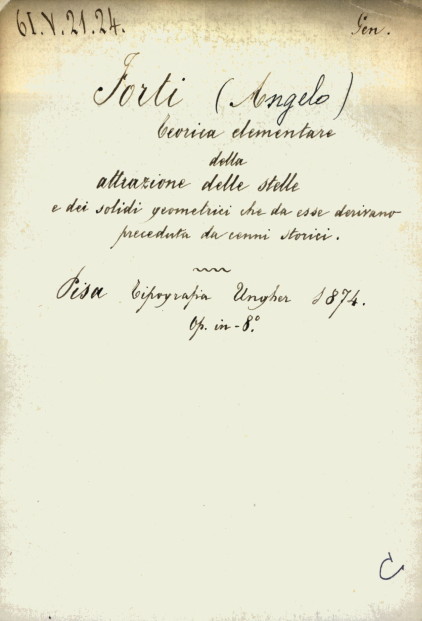 61.V.21.24.
Gen.
Forti (Angelo)
Teorica elementare
della
attrazione delle stelle
e dei solidi geometrici che da esse derivano
preceduta da cenni storici.
Pisa Tipografia Ungher 1874.
Op. in-8.º
C